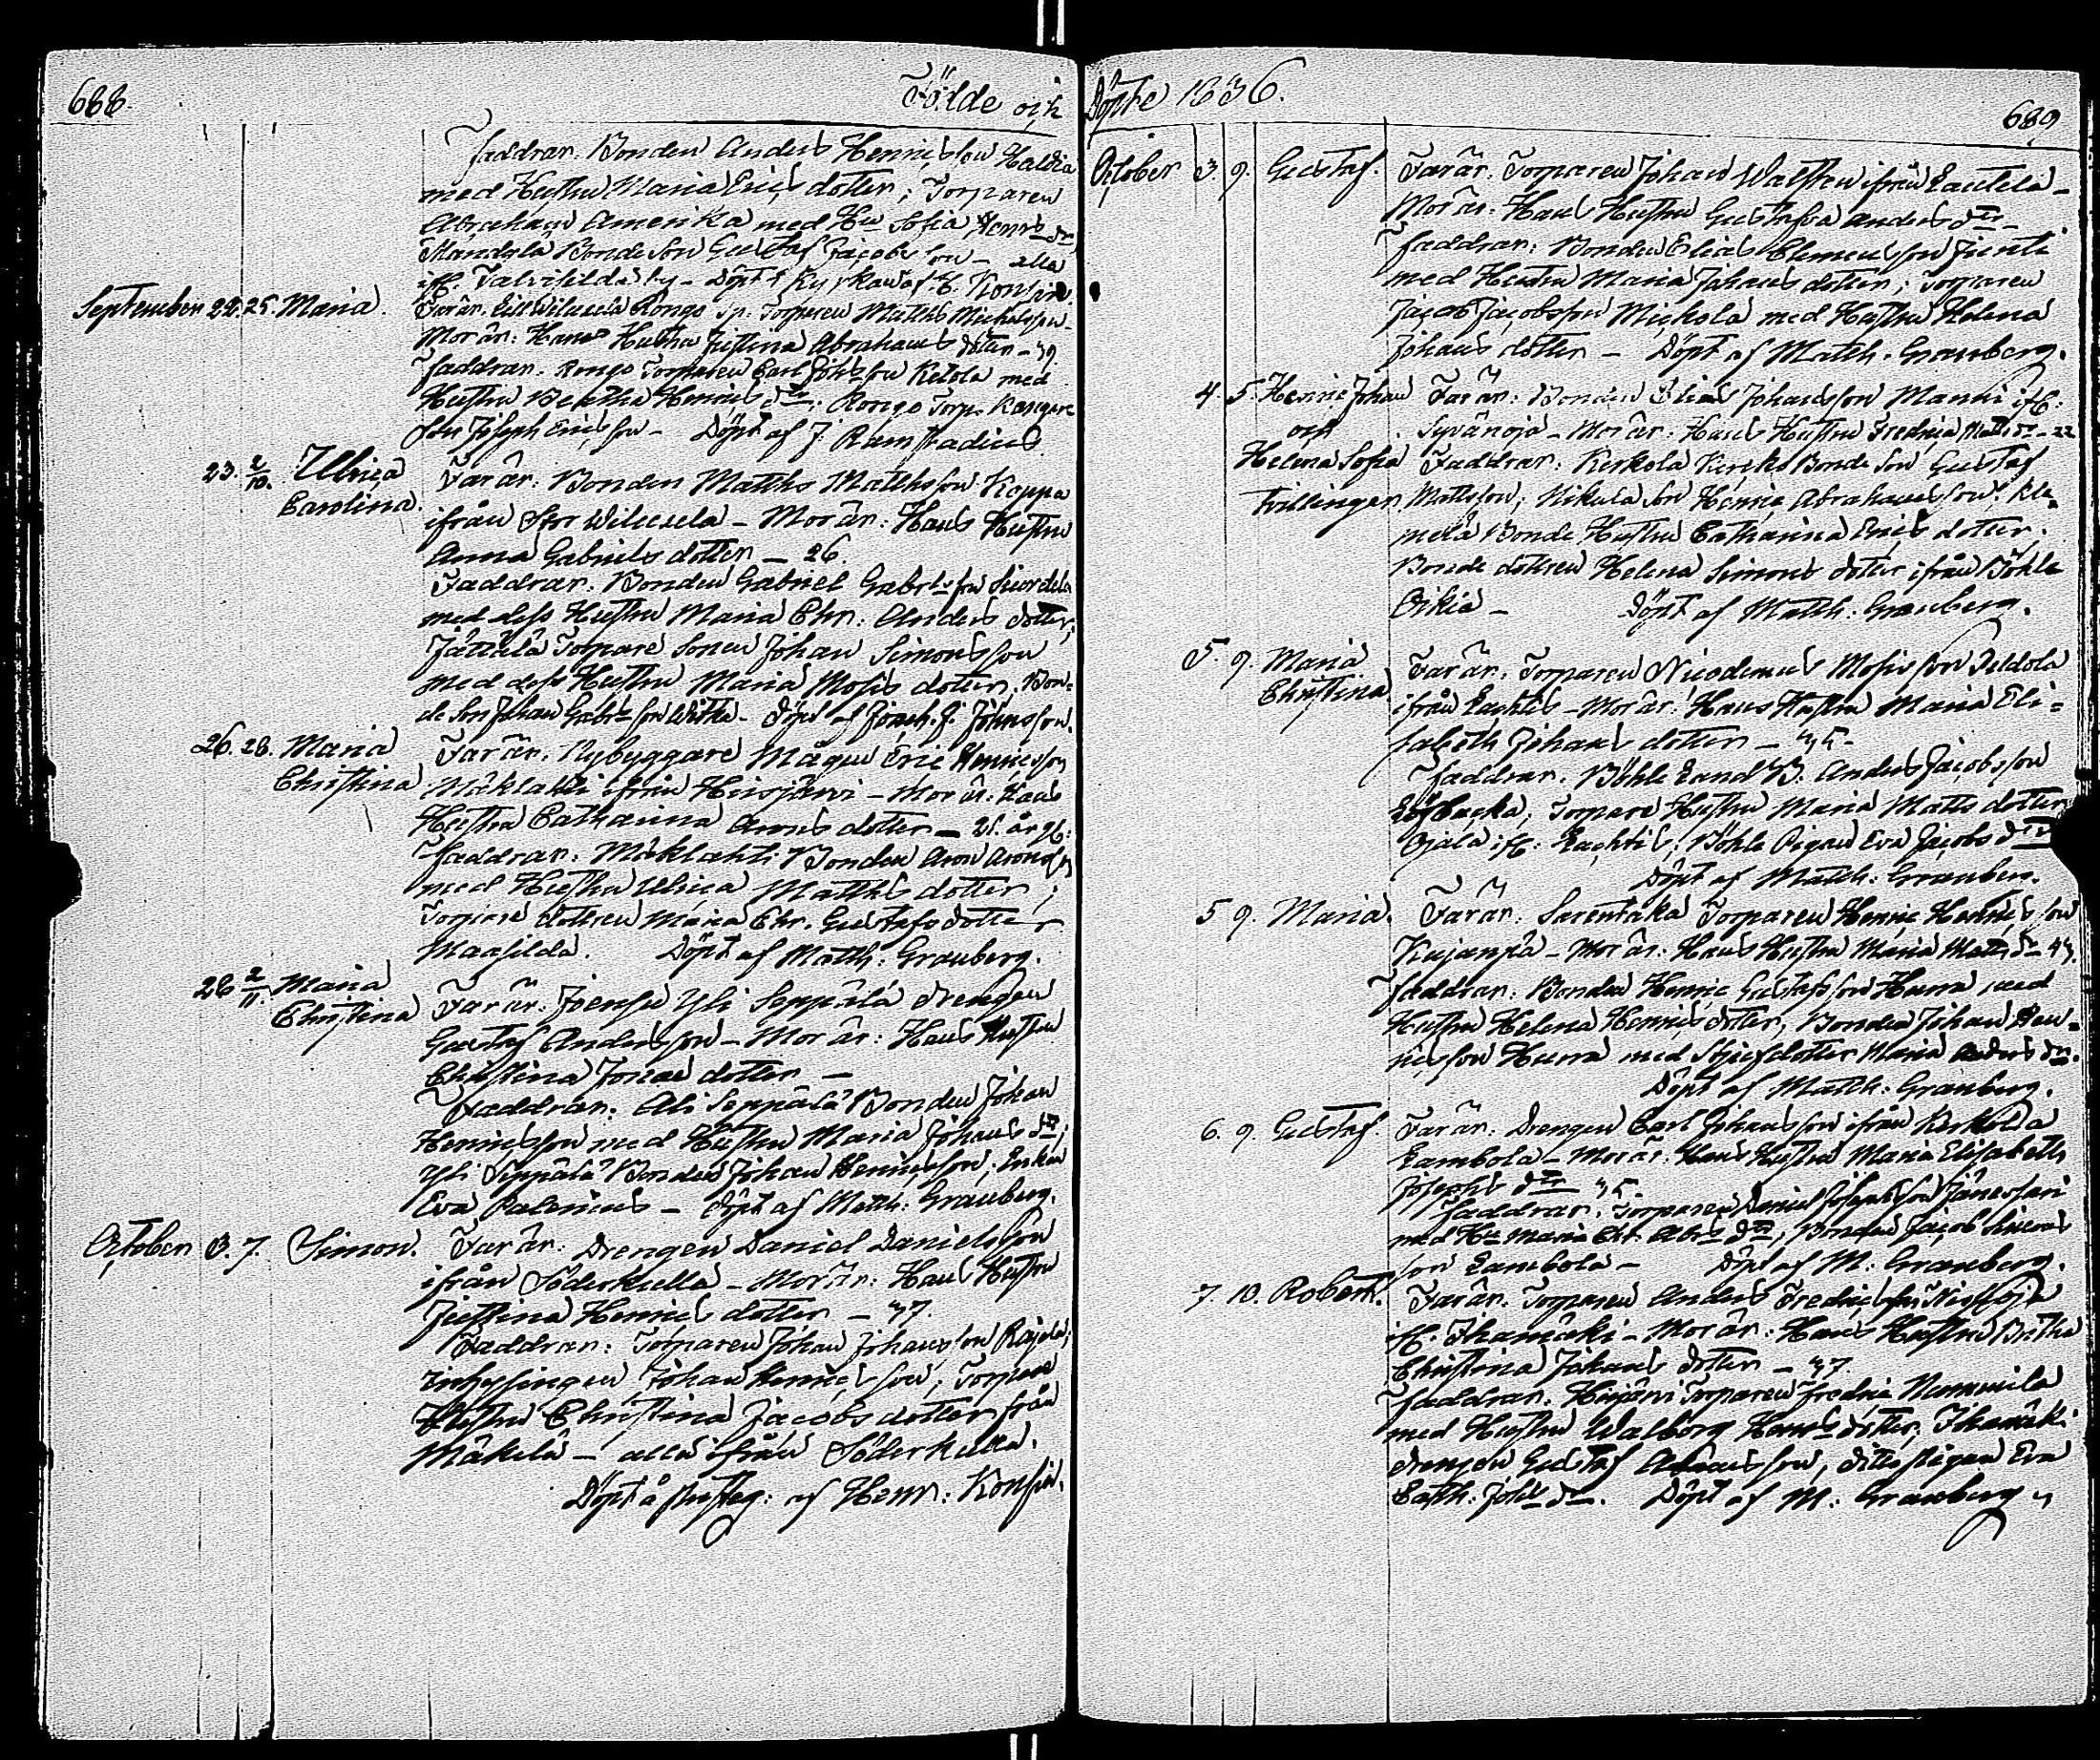 688.
Födde och
Faddrar: Bonden Anders Henricsson Haldia
med Hustru Maria Erics dotter; Torparen
Abraham Amerika med Hu Sofia Henrs dr
Mandala Bondeson Gustaf Jacobsson – alla
ifr. Talvisilda by – Döpt i Kyrkan af H. Konsin.
September 22. 25. Maria.
Far är: Torparen Matths Michelsson
Mor är: Hans Hustru Justina Abrahams dotter – 39
Faddrar: Rongo Torparen Carl Johsson Ketola med
Hustru Beatha Henrics dr; Rongo Torp. Kangare
Son Joseph Ericsson – Döpt af J: Ramstadius
23. 2/10. Ulrica
Carolina.
Far är: Bonden Matths Matthsson Koppa
ifrån Stor Wilusela – Mor är: Hans Hustru
Anna Gabriels dotter – 26.
Faddrar: Bonden Gabriel Gabrlsson
med dess Hustru Maria Chr: Anders dotter;
Jättälä Torpare Sonen Johan Simonsson
med dess Hustru Maria Mosis dotter, Bon=
de Son Johan Gabrlsson – Döpt af J. Johnsson.
26. 28. Maria
Christina
Far är: Nybyggare Mågen Eric Henricsson
Mäklahti ifrån Hirsjärvi – Mor är: Hans
Hustru Catharina Arons dotter – 21. år gl:
Faddrar: Mäklahti Bonden Aron Aronsson
med Hustru Ulrica Matths dotter;
Torpare dottren Maria Chr. Gustafs dotter
Maasilda. Döpt af Matth: Granberg.
28 2/11. Maria
Christina
Far är: Joensu Yli Seppälä drengen
Gustaf Andersson – Mor är: Hans Hustru
Christina Jonae dotter –
Faddrar: Ali Seppälä Bonden Johan
Henricsson med Hustru Maria Johans dr;
Yli Seppälä Bonden Johan Henricsson; Enkan
Eva Palenius – Döpt af Matth: Granberg.
October 3. 7. Simon.
Far är: Drengen Daniel Danielsson
ifrån Söderkulla – Mor är: Hans Hustru
Justina Henrics dotter – 37.
Faddrar: Torparen Johan Johansson Rajala;
Inhysingen Johan Henricsson; Torpare
Hustru Christina Jacobs dotter från
Mäkelä – alla ifrån Söderkulla.
Döpt å af Henr: Konsin.
Döpte 1836.
689
October 3. 9. Gustaf.
Far är: Torparen Johan Walsten ifrån Lautela –
Mor är: Hans Hustru Gustafva Anders dr –
Faddrar: Bonden Elias Clemensson Junti
med Hustru Maria Johans dotter; Torparen
Jacob Jacobsson Mickola med Hustru Helena
Johans dotter – Döpt af Matth. Granberg.
4. 5. Henric Johan
och
Helena Sofia
Tvillingar
Far är: Bonden Elias Johansson Manni ifr:
Syvänojä – Mor är: Hans Hustru Fredrica Matts dr – 22
Faddrar: Kerkola Kereko Bonde Son Gustaf
Mattsson; Nikula Son Henric Abrahamsson; Kle=
melä Bonde Hustru Catharina Erics dotter;
Bonde dottren Helena Simons dotter ifrån Böhle
Oikia – Döpt af Matth: Granberg.
5. 9. Maria
Christina
Far är: Torparen Nicodemus Mosisson Peldola
ifrån Lachtis – Mor är: Hans Hustru Maria Eli=
sabeth Johans dotter – 35.
Faddrar: Böhle Land B. Anders Jacobsson
Löfbacka; Torpare Hustru Maria Matts dotter
Ojala ifr: Lachtis; Böhle Pigan Eva Jacobs dr
Döpt af Matth: Granberg.
5 9. Maria.
Far är: Sarentaka Torparen Henric Henricsson
Kujanpä – Mor är: Hans Hustru Maria Matts dr 43.
Faddrar: Bonden Henric Gustafsson Hurra med
Hustru Helena Henrics dotter; Bonden Johan Hen=
ricsson Hurra med Styfdotter Maria Anders dr.
Döpt af Matth: Granberg.
6. 9. Gustaf.
Far är: Drengen Carl Johansson ifrån Kerkola
Lambola – Mor är: Hans Hustru Maria Elisabeth
Josephs dr 35.
Faddrar: Torparen Daniel Josephsson Jänessari
med Hu Maria Chr. Abrs dr; Bonden Jacob Simons
son Lambola – Döpt af M: Granberg.
7. 10. Robert.
Far är: Torparen Anders Fredricsson Niskoja
ifr. Ihamäki – Mor är: Hans Hustru Britha
Christina Johans dotter – 37
Faddrar: Hirjärvi Torparen Fredric Nummila
med Hustru Walborg Henrs dotter; Ihamäki
drengen Gustaf Adamsson, ditto Pigan Eva
Cath. Johs dr. Döpt af M: Granberg